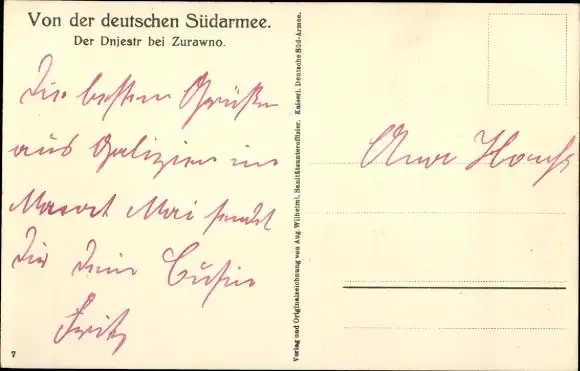 Von der deutschen Südarmee.
Der Dnjestr bei Zurawno.
Die besten Grüße
aus Galizien im
Monat Mai sendet
Dir Dein Cusin
Fritz
7
Verlag und Originalzeichnung von Aug. Wilhelmi, Sanitätsunteroffizier. Kaiserl. Deutsche Süd-Armee.
Anna